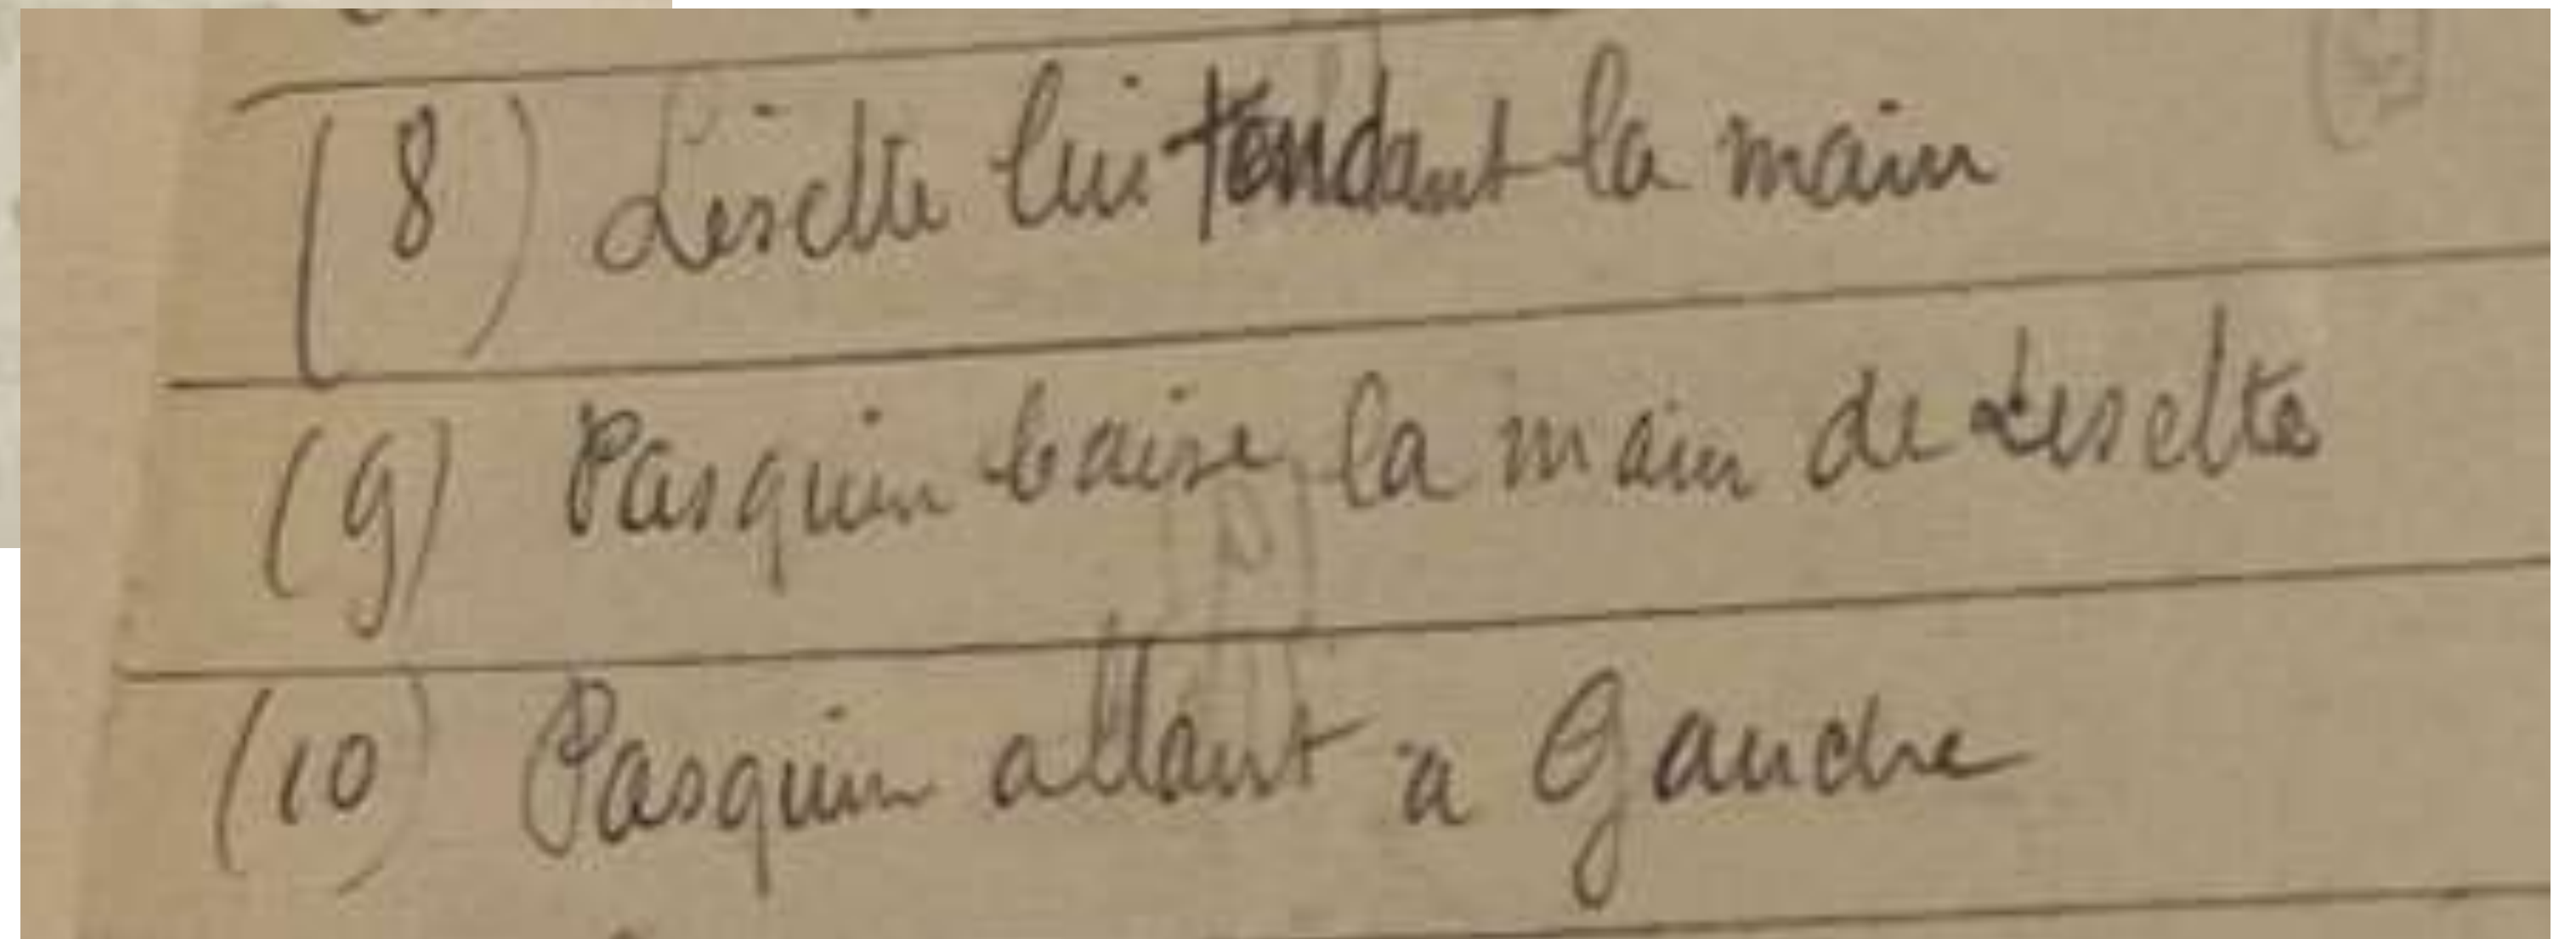 (8) Liselte lui tendant la main
(9) Pasquin baise la main de Liselte
(10) Pasquin allant à Gauche